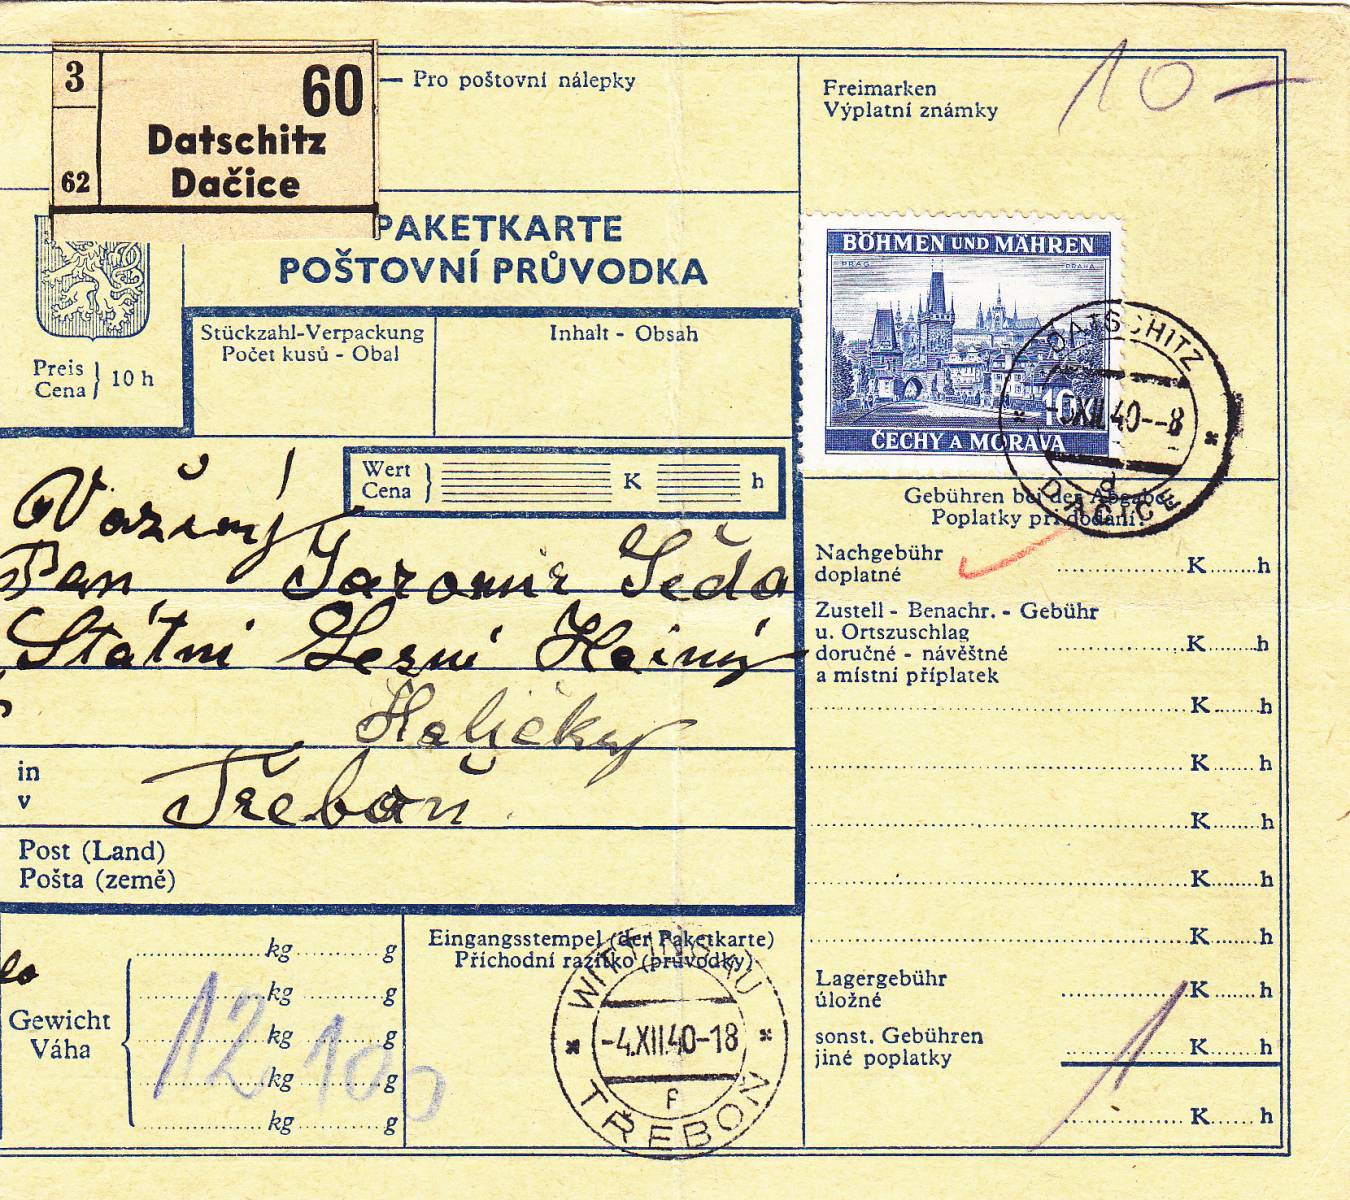 3
60
62
Datschitz
Dačice
Pro poštovní nálepky
Freimarken
Výplatní známky
10 —
PAKETKARTE
POŠTOVNÍ PRŮVODKA
Preis
Cena
10 h
Stückzahl-Verpackung
Počet kusů - Obal
Inhalt - Obsah
BÖHMEN UND MÄHREN
PRAG
PRAHA
10
ČECHY A MORAVA
DATSCHITZ
-5.XII.40--8
DAČICE
Wert
Cena
K
h
Vážený
Pan Jaromír Šeda
Státní Lesní Hajný
in
v
Třeboň
Post (Land)
Pošta (země)
Gebühren bei der Abgabe
Poplatky při dodání:
Nachgebühr
doplatné
K h
Zustell - Benachr. - Gebühr
u. Ortszuschlag
doručné - návěštné
a místní příplatek
K h
K h
K h
K h
K h
K h
Lagergebühr
úložné
K h
sonst. Gebühren
jiné poplatky
K h
K h
Gewicht
Váha
kg g
kg g
kg g
kg g
kg g
12 100
Eingangsstempel (der Paketkarte)
Příchodní razítko (průvodky)
WITTINGAU
-4.XII.40-18
f
TŘEBOŇ